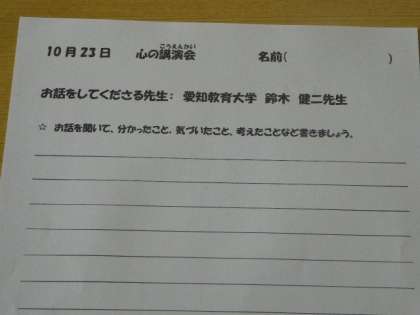 10月23日 心の講演会 名前( )
こうえんかい
お話をしてくださる先生: 愛知教育大学 鈴木 健二先生
☆ お話を聞いて、分かったこと、気づいたこと、考えたことなど書きましょう。